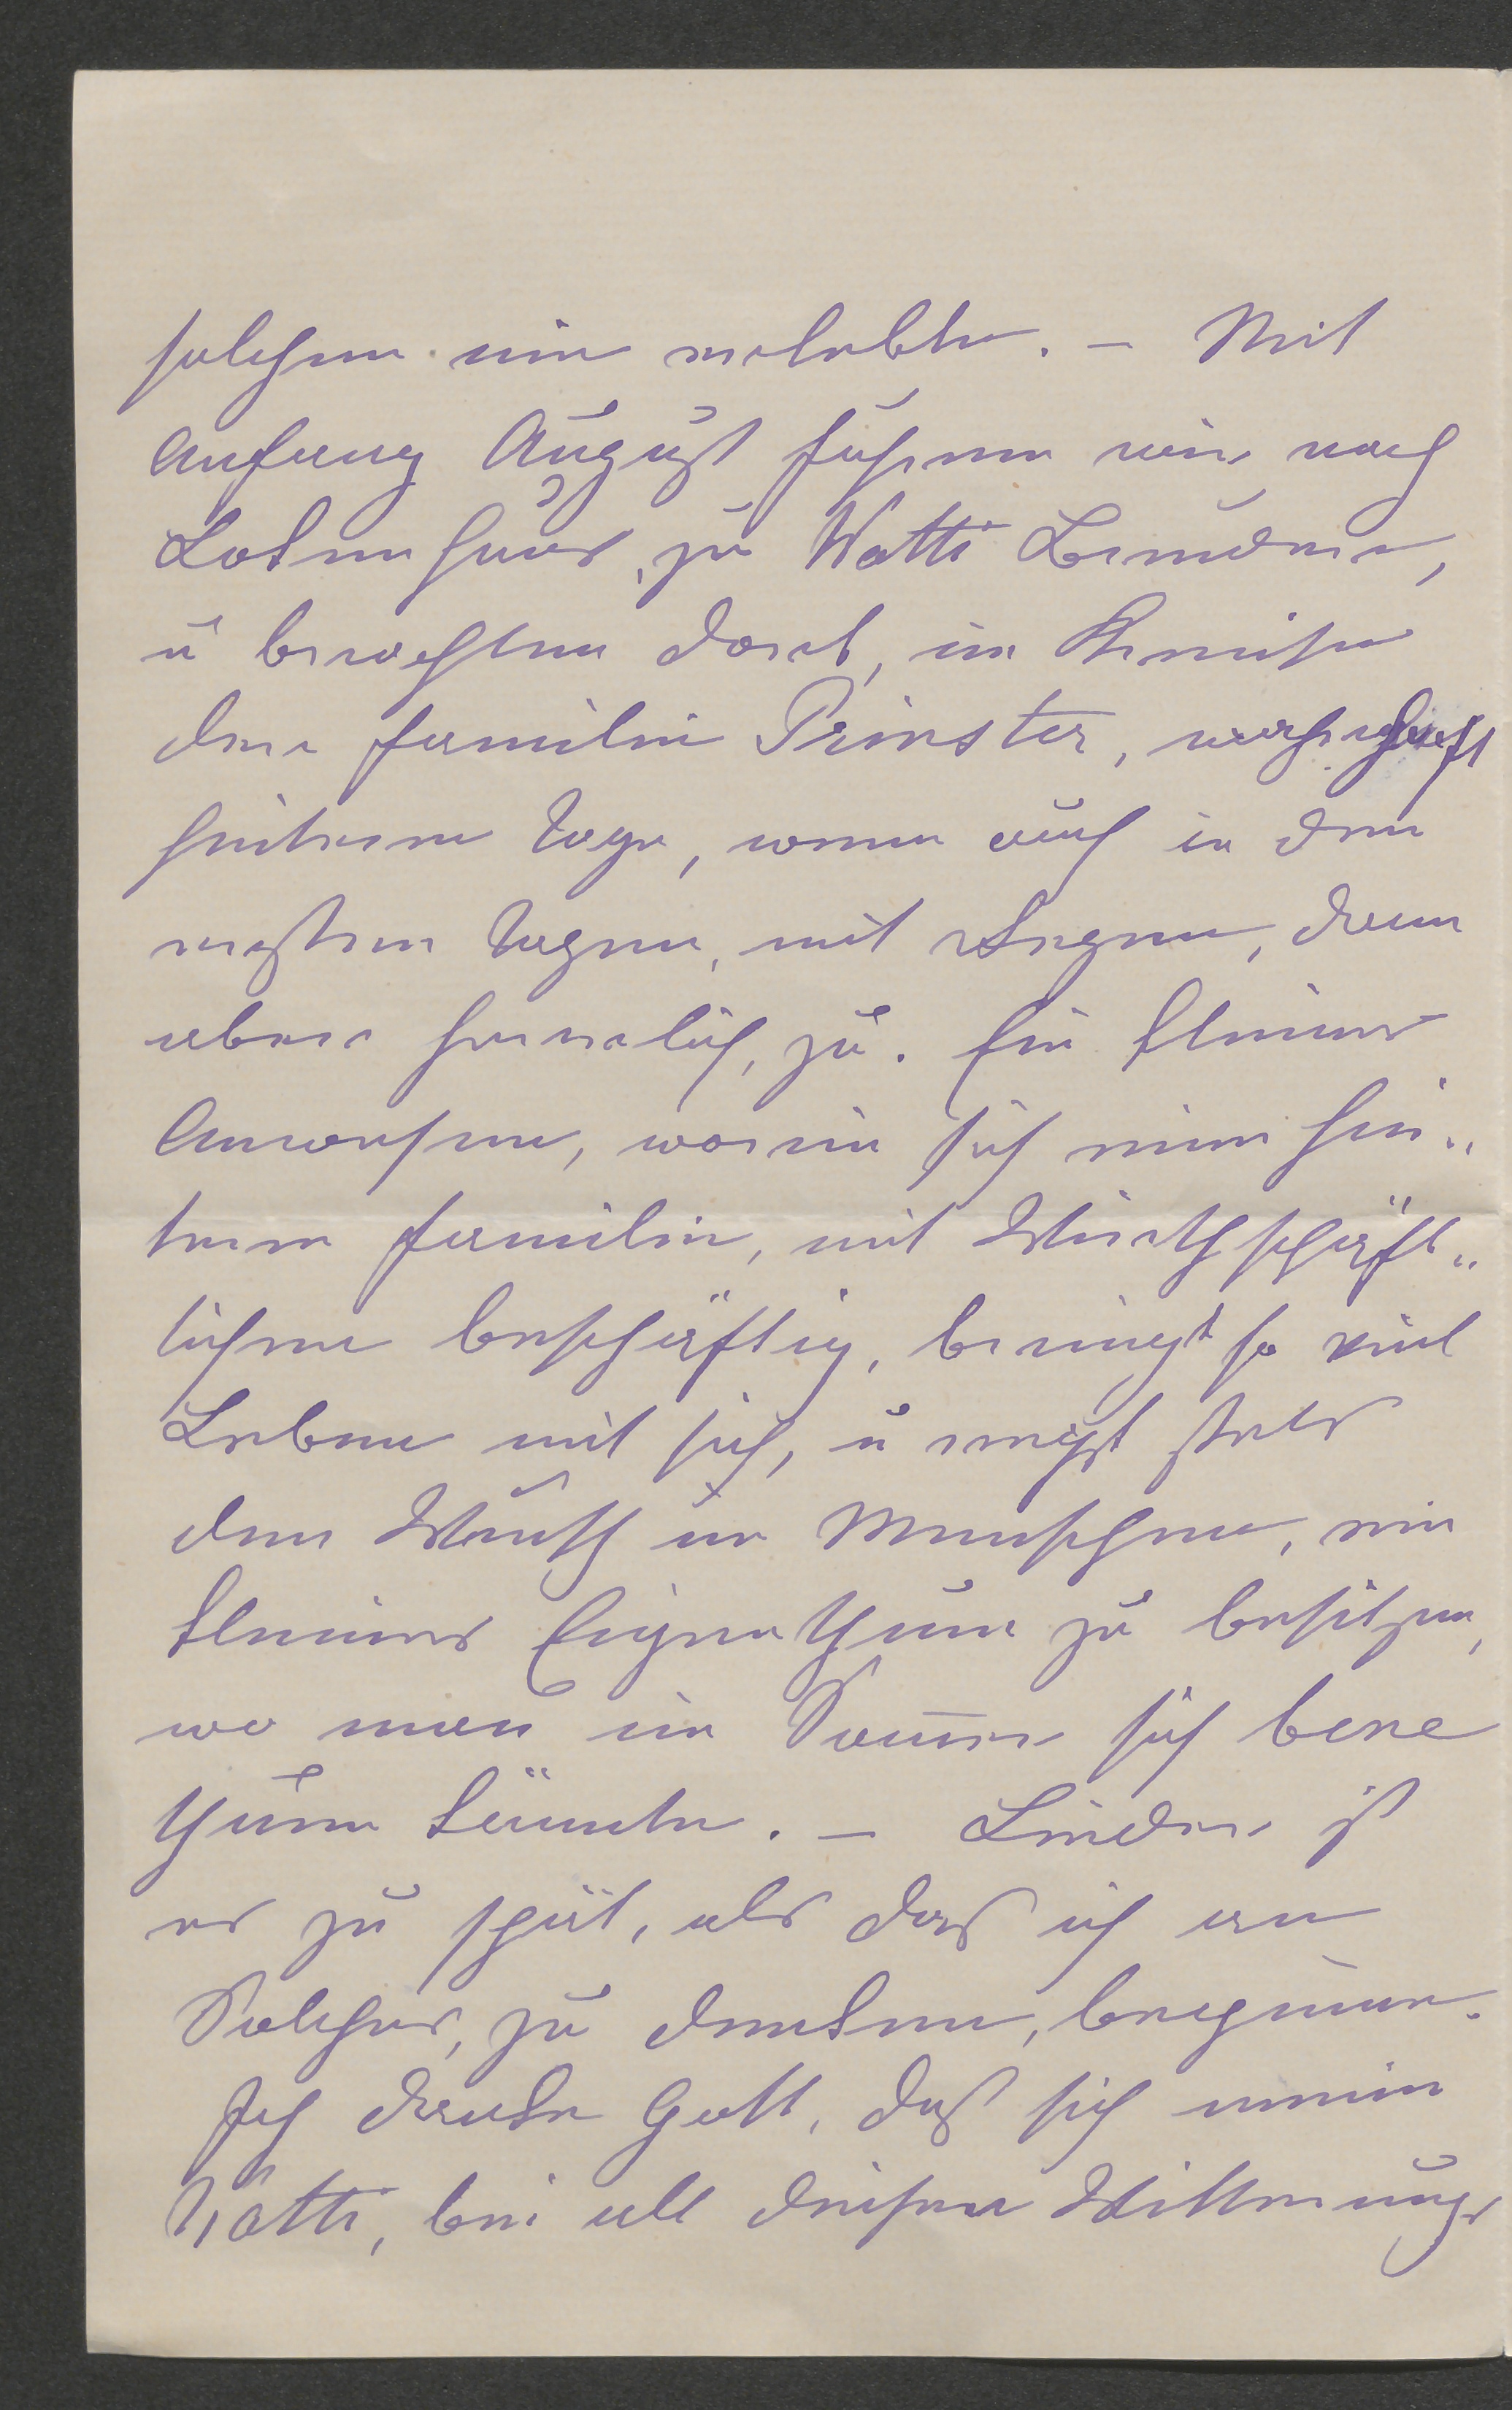 solchen nie erlebte. – Mit
Anfang August fuhren wir nach
Lokenhaus, zu Watti Bruder,
u brachten dort, im Kreise
der Familie Prinster, wahrhaft
heitere Tage, wenn auch in den
ersten Tagen, mit Regen, dann
aber herrlich, zu. Ein kleines
Anwesen, worin sich eine hei„
tere Familie, mit Wirthschäft„
lichen beschäftig, bringt so viel
Leben mit sich, u regt stets
den Wunsch im Menschen, ein
kleines Eigenthum zu besitzen,
wo man im Som̅er sich bene
thuen könnte. – Leider ist
es zu spät, als das ich an
Solches, zu denken, beginne.
Ich danke Gott, daß sich mein
Watti, bei all diesen Witterungs